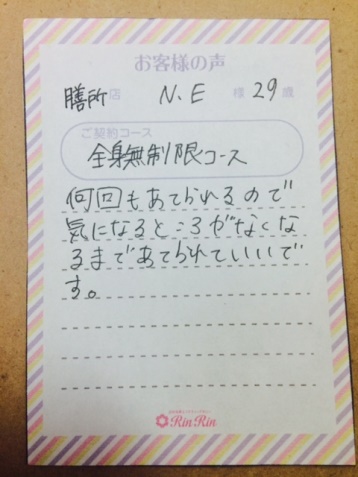 お客様の声
膳所店 N.E 様 29歳
ご契約コース
全身無制限コース
何回もあてられるので
気になるところがなくな
るまであてられていいで
す。
RinRin